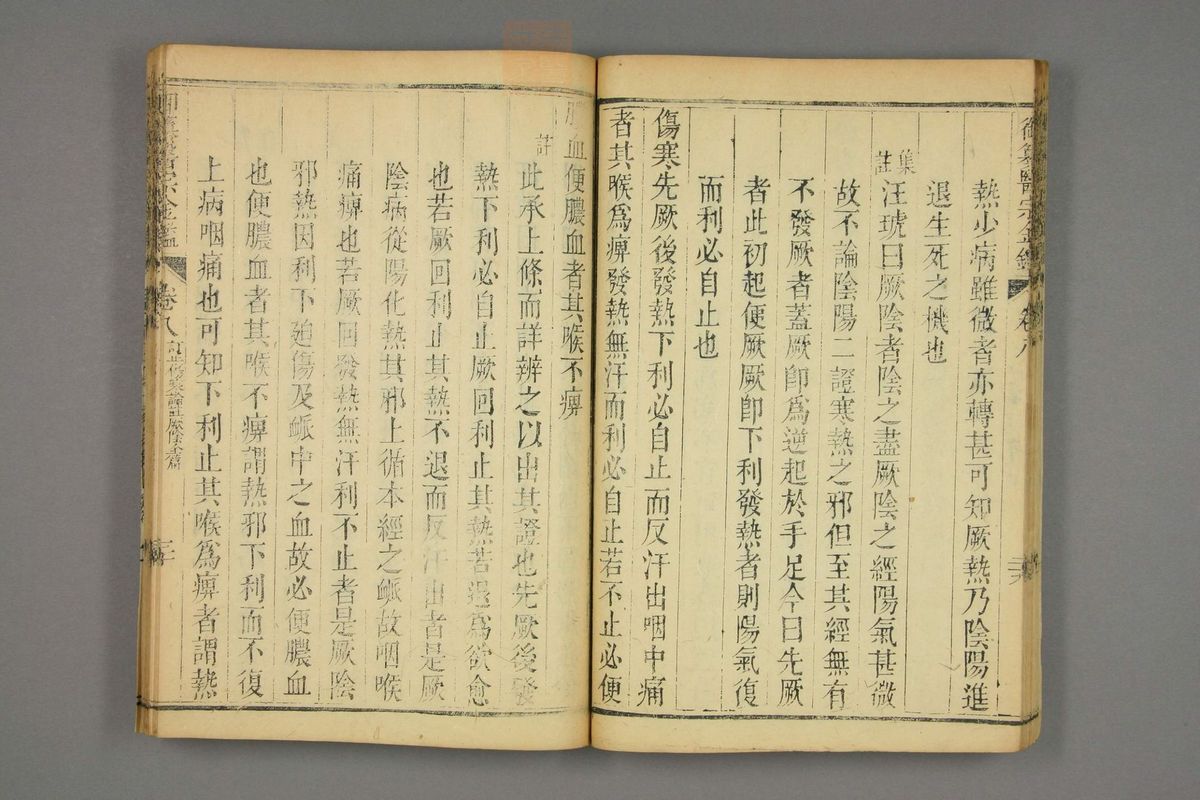 御纂醫宗金鑑 卷八
熱少病雖微者亦轉甚可知厥熱乃陰陽進
退生死之機也
集註
汪琥曰厥陰者陰之盡厥陰之經陽氣甚微
故不論陰陽二證寒熱之邪但至其經無有
不發厥者蓋厥卽為逆起於手足今曰先厥
者此初起便厥厥卽下利發熱者則陽氣復
而利必自止也
傷寒先厥後發熱下利必自止而反汗出咽中痛
者其喉為痹發熱無汗而利必自止若不止必便
膿血便膿血者其喉不痹
註
此承上條而詳辨之以出其證也先厥後發
熱下利必自止厥回利止其熱若退為欲愈
也若厥回利止其熱不退而反汗出者是厥
陰病從陽化熱其邪上循本經之脈故咽喉
痛痹也若厥回發熱無汗利不止者是厥陰
邪熱因利下迫傷及脈中之血故必便膿血
也便膿血者其喉不痹謂熱邪下利而不復
上病咽痛也可知下利止其喉為痹者謂熱
宗金鑑 卷八